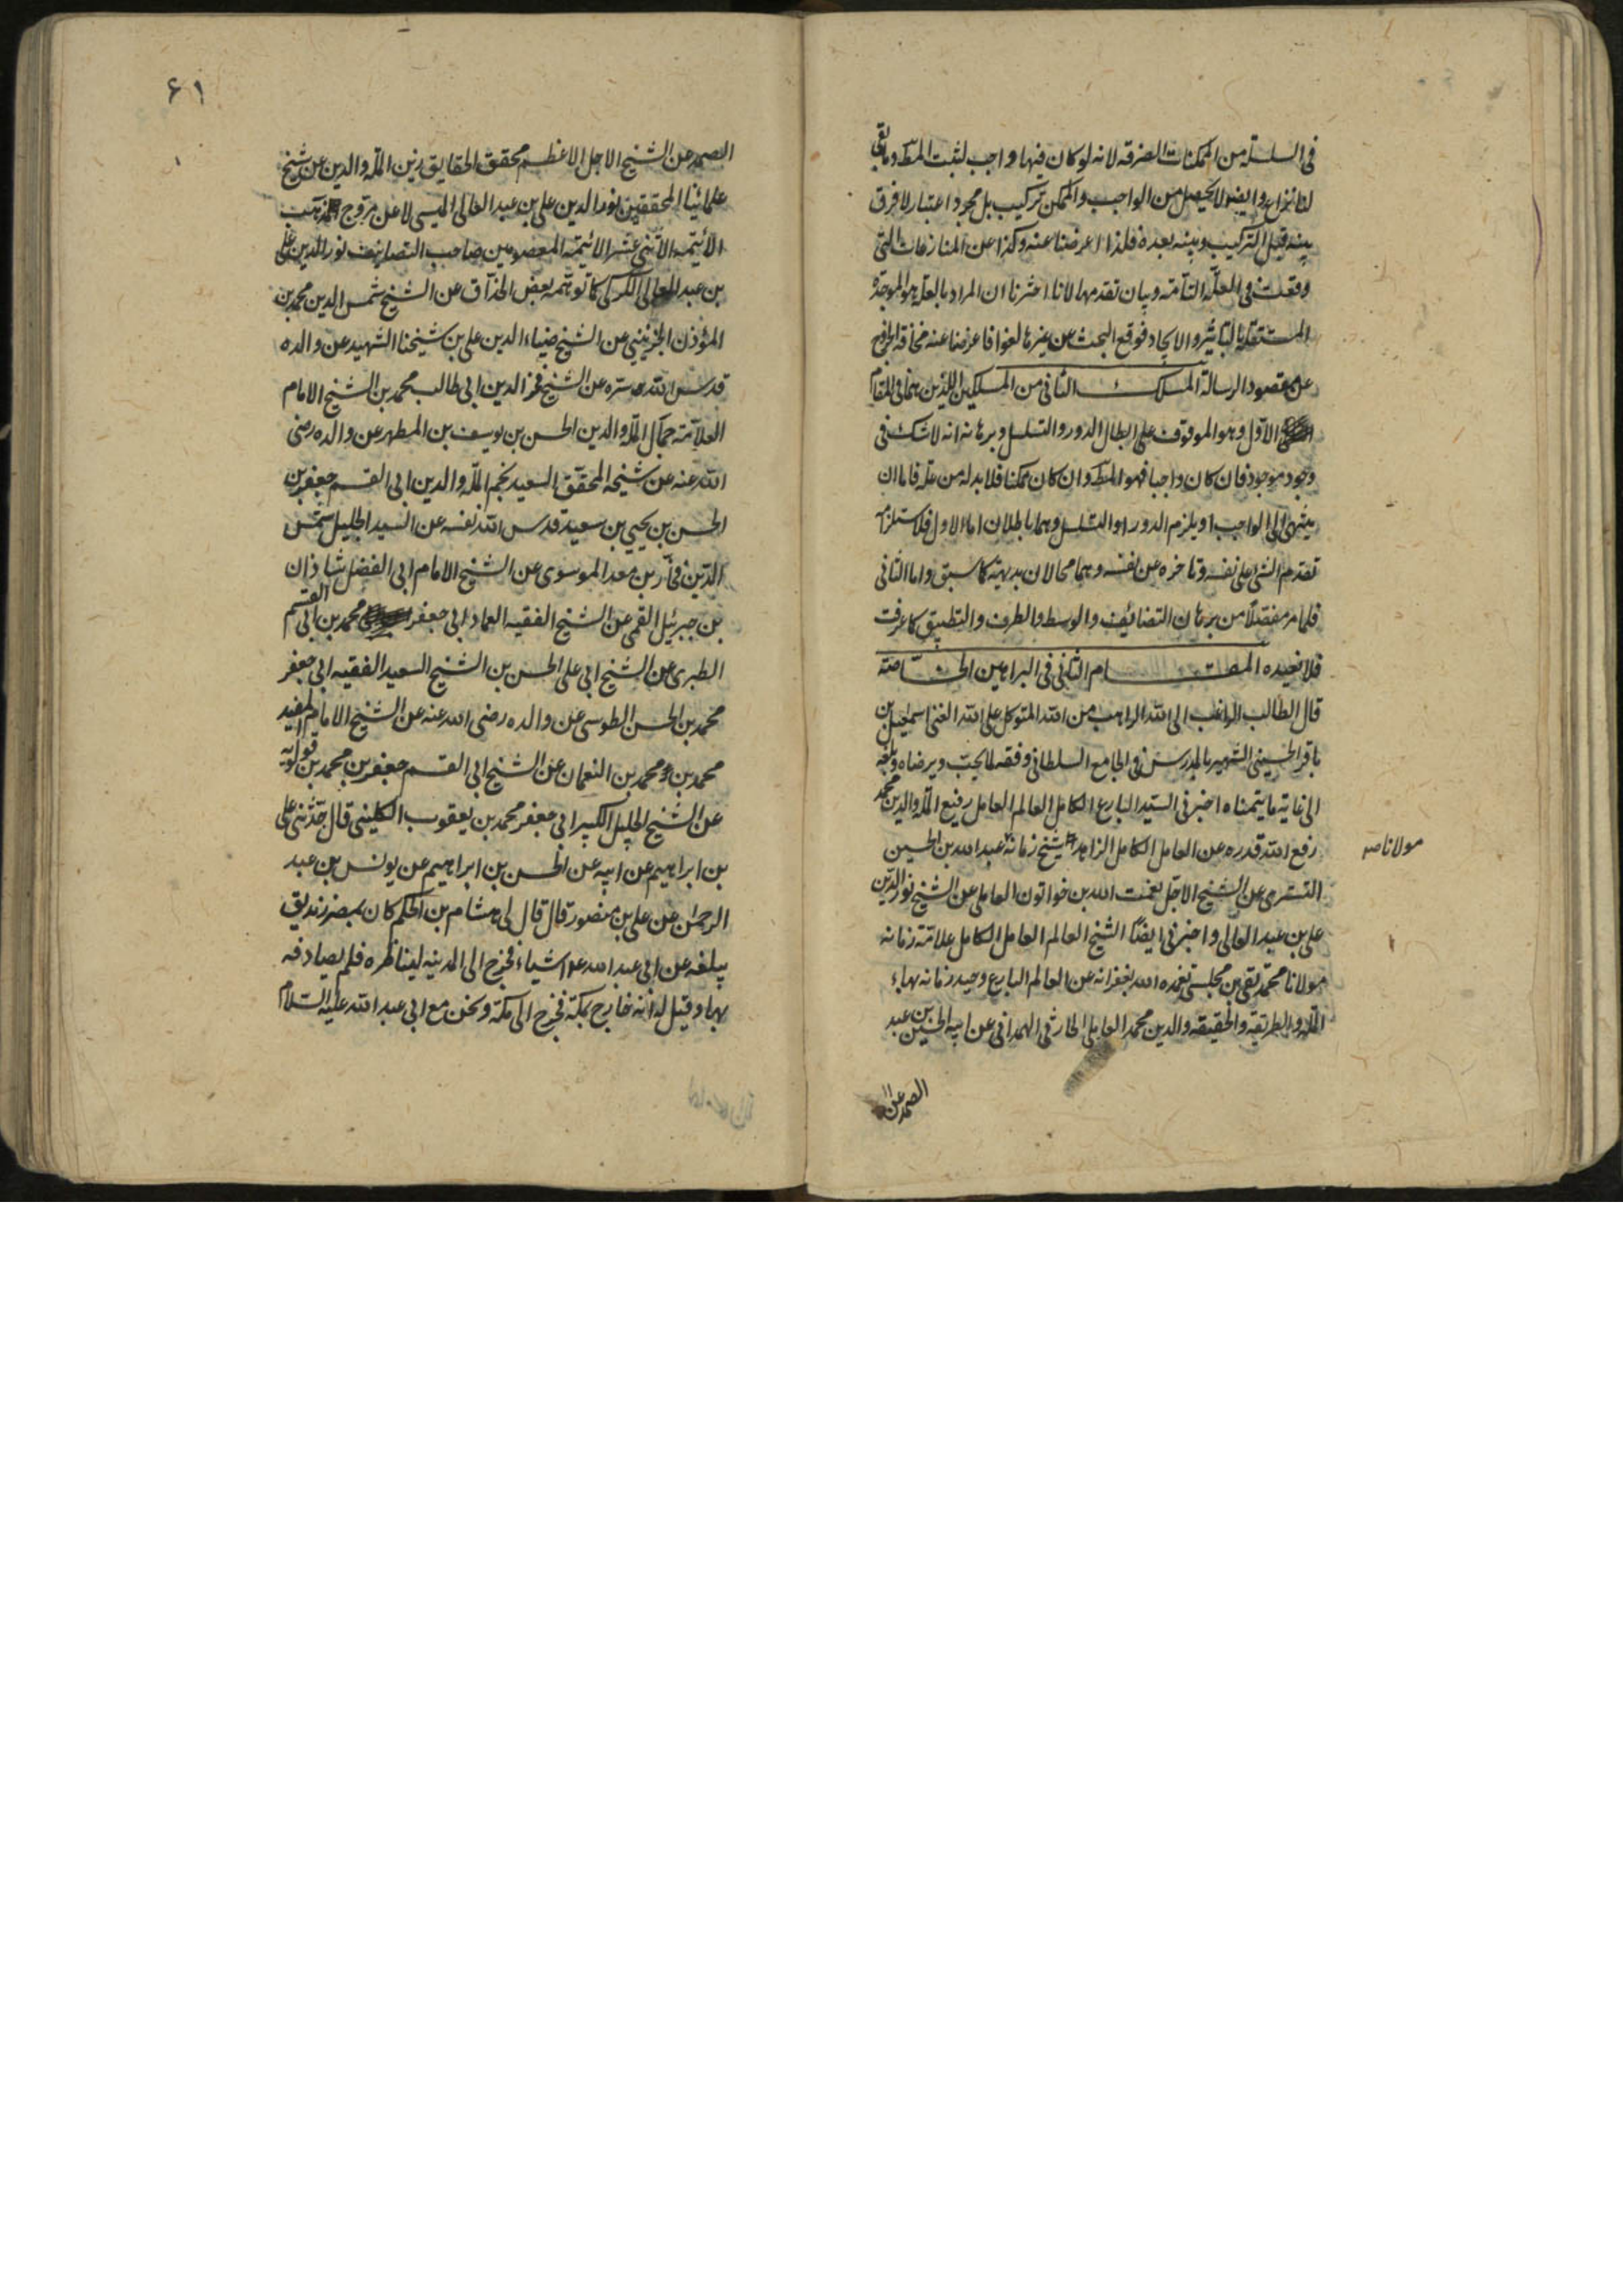 فى السلسلة من الممكنات الصرفه لانه لو كان فيها واجب لثبت المط وما بقى
لنا نزاع وايضا لا يحصل من الواجب والممكن تركيب بل مجرد اعتبار لا فرق
بينه قبل التركيب وبينه بعده فلذا اعرضنا عنه وكذا عن المنازعات التى
وقعت فى العلة التامة وبيان تقدمها لانا اخترنا ان المراد بالعلة هو الموجدة
المستقلة بالتاثير والايجاد فوقع البحث عن غيرها لغوا فاعرضنا عنه مخافة الخروج
عن مقصود الرسالة المسلك الثانى من المسلكين اللذين هما فى المقام
الاول وهو الموقوف على ابطال الدور والتسلسل وبرهانه انه لا شك فى
وجود موجود فان كان واجبا فهو المط وان كان ممكنا فلا بد له من علة فاما ان
ينتهى الى الواجب او يلزم الدور او التسلسل وهما باطلان اما الاول فلاستلزامه
تقدم الشئ على نفسه وتاخره عن نفسه وهما محالان بديهة كما سبق واما الثانى
فلما مر مفصلا من برهان التضائف والوسط والطرف والتطبيق كما عرفت
فلا نعيده المقام الثانى فى البراهين الخاصة
قال الطالب الراغب الى الله الراهب من الله المتوكل على الله الغنى اسمعيل بن
باقر الحسينى الشهير بالمدرس فى الجامع السلطانى وفقه لما يحب ويرضاه وبلغه
الى غاية ما يتمناه اخبرنى السيد البارع الكامل العالم العامل رفيع الملة والدين محمد
رفع الله قدره عن العامل الكامل الزاهد شيخ زمانه عبد الله بن الحسين
مولانا
التسترى عن الشيخ الاجل نعمت الله بن خواتون العاملى عن الشيخ نور الدين
على بن عبد العالى واخبرنى ايضا الشيخ العالم العامل الكامل علامة زمانه
مولانا محمد تقى بن مجلسى تغمده الله بغفرانه عن العالم البارع وحيد زمانه بهاء
الملة والطريقة والحقيقة والدين محمد العاملى الحارثى الهمدانى عن ابيه الحسين بن عبد
الصمد عن
٦١
الصمد عن الشيخ الاجل الاعظم محقق الحقايق زين الملة والدين عن شيخ
علمائنا المحققين نور الدين على بن عبد العالى الميسى لا عن مروج مذهب
الائيمة الاثنى عشر الائيمة المعصومين صاحب التصانيف نور الدين على
بن عبد العالى الكركى كما توهمه بعض الحذاق عن الشيخ شمس الدين محمد بن
المؤذن الجزينى عن الشيخ ضياء الدين على بن شيخنا الشهيد عن والده
قدس الله سره عن الشيخ فخر الدين ابى طالب محمد بن الشيخ الامام
العلامة جمال الملة والدين الحسن بن يوسف بن المطهر عن والده رضى
الله عنه عن شيخه المحقق السعيد نجم الملة والدين ابى القسم جعفر بن
الحسن بن يحيى بن سعيد قدس الله نفسه عن السيد الجليل شمس
الدين فخار بن معد الموسوى عن الشيخ الامام ابى الفضل شاذان
بن جبرئيل القمى عن الشيخ الفقيه العماد ابى جعفر محمد بن ابى القسم
الطبرى عن الشيخ ابى على الحسن بن الشيخ السعيد الفقيه ابى جعفر
محمد بن الحسن الطوسى عن والده رضى الله عنه عن الشيخ الامام المفيد
محمد بن محمد بن النعمان عن الشيخ ابى القسم جعفر بن محمد بن قولويه
عن الشيخ الجليل الكبير ابى جعفر محمد بن يعقوب الكلينى قال حدثنى على
بن ابراهيم عن ابيه عن الحسن بن ابراهيم عن يونس بن عبد
الرحمن عن على بن منصور قال قال لى هشام بن الحكم كان بمصر زنديق
يبلغه عن ابى عبد الله ع اشياء فخرج الى المدينه ليناظره فلم يصادفه
بها وقيل له انه خارج بمكة فخرج الى مكة ونحن مع ابى عبد الله عليه السلام